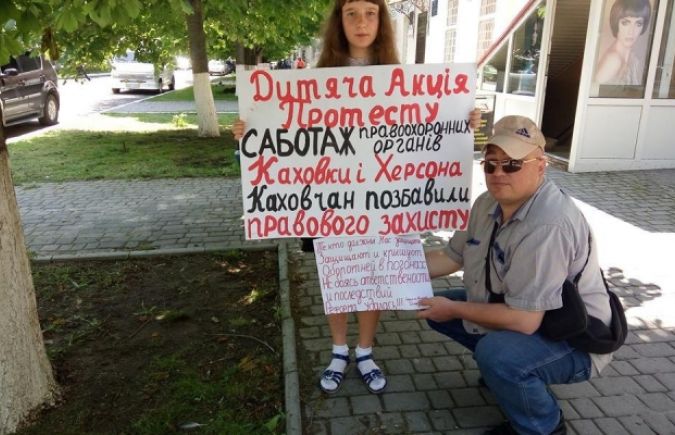 Дитяча Акція
Протесту
САБОТАЖ правоохоронних
органів
Каховки і Херсона
Каховчан позбавили
правового захисту
Те кто должны Нас защищать
Защищают и крышуют
Оборотней в погонах
Не боясь ответственности
и последствий
Реформа "удалась"!!!